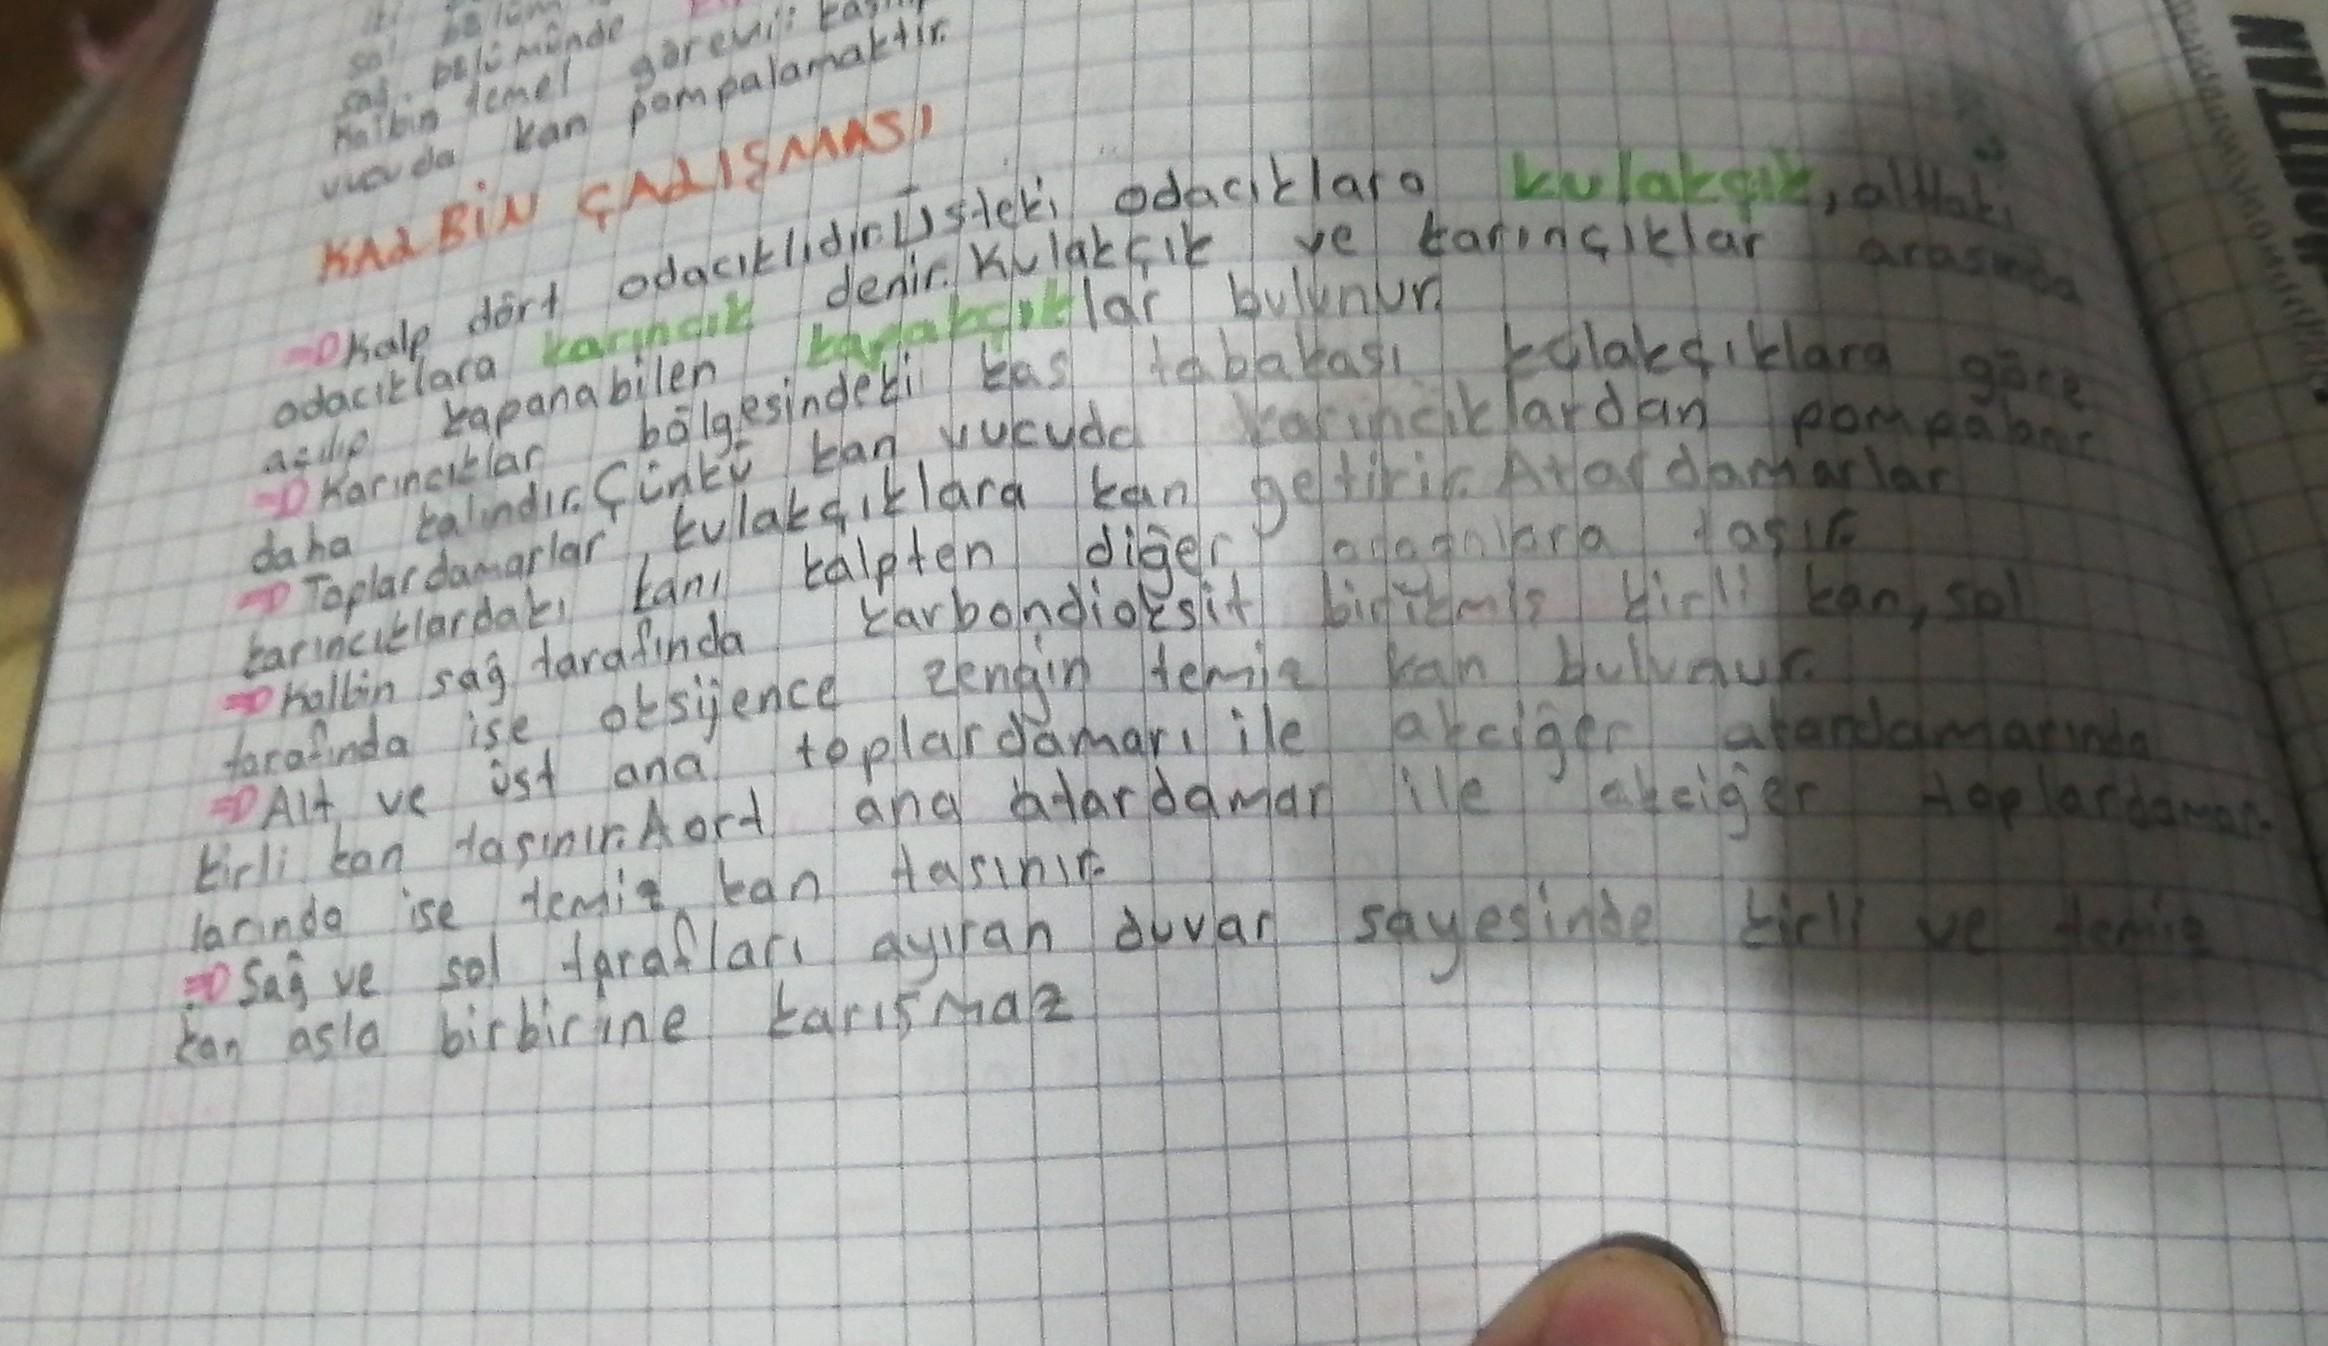 sol bölüm
sağ bölümünde
Kalbin temel görevi:
vucuda kan pompalamaktır.
KALBİN ÇALIŞMASI
⇒Kalp dört odacıklıdır.Üsteki odacıklara kulakçık, alttaki
odacıklara karıncık denir.Kulakçık ve karınçıklar arasında
açılıp kapanabilen kapakçıklar bulunur.
⇒Karıncıklar bölgesindeki kas tabakası kulakçıklara göre
daha kalındır.Çünkü kan vucuda karıncıklardan pompalanır
⇒Toplardamarlar, kulakçıklara kan getirir.Atardamarlar
karıncıklardaki kanı kalpten diğer taşır.
⇒Kalbin sağ tarafında karbondioksit birikmiş kirli kan, sol
tarafında ise oksijence zengin temiz kan bulunur.
⇒Alt ve üst ana toplardamarı ile akciğer atardamarında
kirli kan taşınır.Aort ana atardamar ile akciğer toplardamar-
larında ise temiz kan taşınır.
⇒Sağ ve sol tarafları ayıran duvar sayesinde kirli ve temiz
kan asla birbirine karışmaz